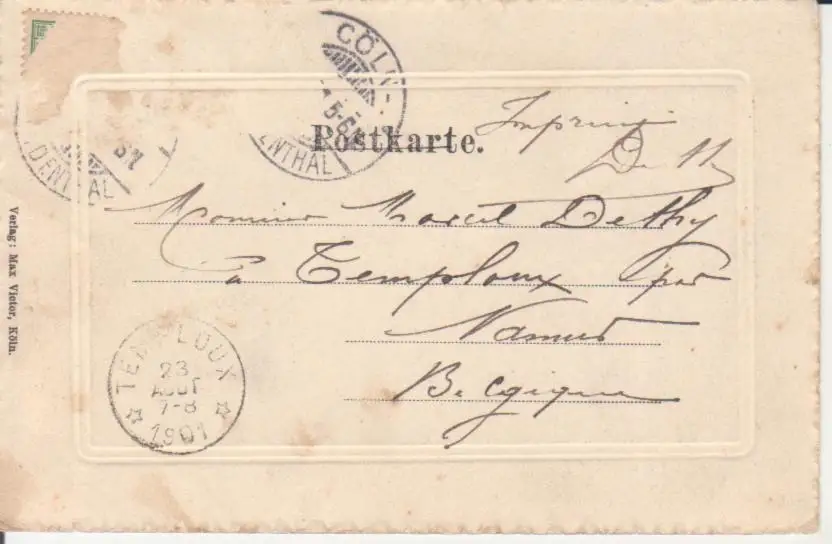 CÖLN-
5-6
ENTHAL
DENTHAL
Postkarte.
Imprimé
Monsieur Marcel Dethy
à Temploux par
Namur
Belgique
TEMPLOUX
23
AOUT
7-8
1901
Verlag: Max Victor, Köln.